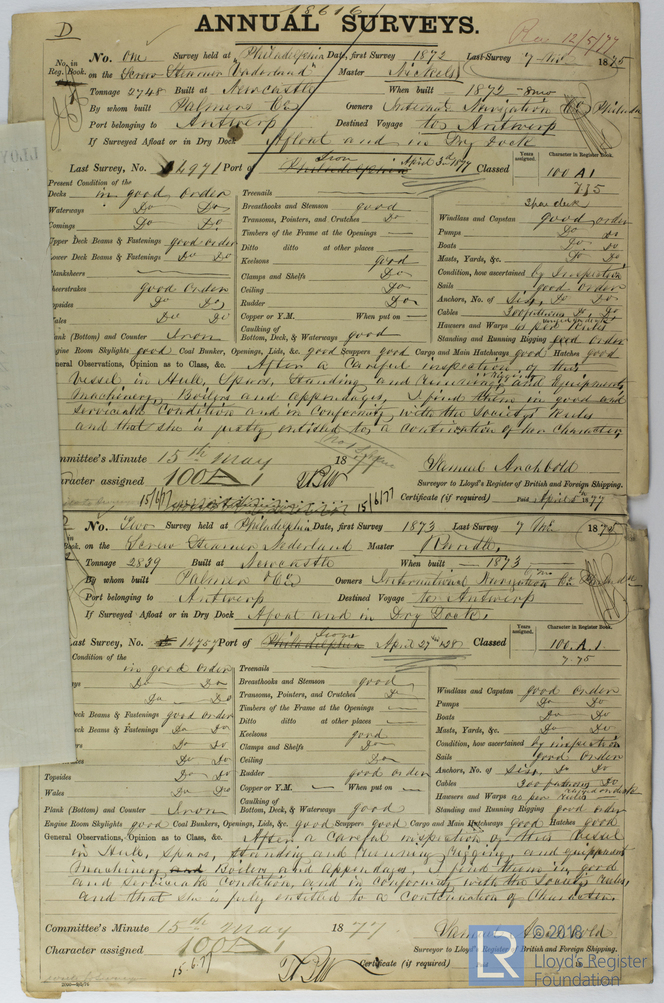 D
18616
ANNUAL SURVEYS.
Rec 12/5/77
No. in Reg. Book.
No. One Survey held at Philadelphia Date, first Survey 1872 Last Survey 7 Mo 1875
on the Screw Steamer Vaderland Master Nickels
Tonnage 2748 Built at Newcastle When built 1872 - 8mo
By whom built Palmers Co Owners Internat Navigation Co Philada
Port belonging to Antwerp Destined Voyage to Antwerp
If Surveyed Afloat or in Dry Dock Afloat and in Dry Dock
Last Survey, No. 14971 Port of Philadelphia Iron April 3rd 1877 Classed
Years assigned. Character in Register Book.
100 A1
7/75
Spar deck
Present Condition of the
Decks in good order
Waterways Do Do
Comings Do Do
Upper Deck Beams & Fastenings good order
Lower Deck Beams & Fastenings Do Do
Plansheers
Sheerstrakes good order
Topsides Do Do
Wales Do Do
Plank (Bottom) and Counter Iron
Treenails
Breasthooks and Stemson good
Transoms, Pointers, and Crutches Do
Timbers of the Frame at the Openings
Ditto ditto at other places
Keelsons good
Clamps and Shelfs Do
Ceiling Do
Rudder Do
Copper or Y.M. When put on
Caulking of Bottom, Deck, & Waterways good
Windlass and Capstan good order
Pumps Do Do
Boats Do Do
Masts, Yards, &c. Do Do
Condition, how ascertained by Inspection
Sails good order
Anchors, No. of Six, Do Do
Cables 300 fathoms Do Do
Hawsers and Warps as per Rules
Standing and Running Rigging good order
Engine Room Skylights good Coal Bunker, Openings, Lids, &c. good Scuppers good Cargo and Main Hatchways good Hatches good
General Observations, Opinion as to Class, &c. After a Careful inspection of this
Vessel in Hull, Spars, Standing and Running Rigging and Equipments
Machinery, Boilers and appendages, I find them in good and
Servicable Condition and in Conformity with the Society's Rules
and that she is justly entitled to a continuation of her Character
Committee's Minute 15th May 1877
Samuel Archbold
Character assigned 100A1
Surveyor to Lloyd's Register of British and Foreign Shipping.
15/6/77
15/6/77
Certificate (if required) Paid April 5th 1877
No. Two Survey held at Philadelphia Date, first Survey 1873 Last Survey 7 Mo 1875
on the Screw Steamer Nederland Master
Tonnage 2839 Built at Newcastle When built 1873
By whom built Palmer & Co Owners International Navigation Co Philada
Port belonging to Antwerp Destined Voyage to Antwerp
If Surveyed Afloat or in Dry Dock Afloat and in Dry Dock.
Last Survey, No. 14757 Port of Philadelphia Iron April 27th Classed
Years assigned. Character in Register Book.
100.A.1.
7-75
Condition of the
in good order
Do Do
Do Do
Deck Beams & Fastenings good order
Deck Beams & Fastenings Do Do
Do Do
Do Do
Topsides Do Do
Wales Do Do
Plank (Bottom) and Counter Iron
Treenails
Breasthooks and Stemson good
Transoms, Pointers, and Crutches Do
Timbers of the Frame at the Openings
Ditto ditto at other places
Keelsons good
Clamps and Shelfs Do
Ceiling Do
Rudder good order
Copper or Y.M. When put on
Caulking of Bottom, Deck, & Waterways good
Windlass and Capstan good order
Pumps Do Do
Boats Do Do
Masts, Yards, &c. Do Do
Condition, how ascertained by inspection
Sails good order
Anchors, No. of Six, Do Do
Cables 300 fathoms Do
Hawsers and Warps as per Rules
Standing and Running Rigging good order
Engine Room Skylights good Coal Bunker, Openings, Lids, &c. good Scuppers good Cargo and Main Hatchways good Hatches good
General Observations, Opinion as to Class, &c. After a Careful inspection of this Vessel
in Hull, Spars, Standing and Running Rigging and equipments
Machinery Boilers and appendages, I find them in good
and Servicable Condition, and in Conformity with the Society Rules,
and that she is fully entitled to a Continuation of Character
Committee's Minute 15th May 1877
Samuel Archbold
Character assigned 100A1
Surveyor to Lloyd's Register of British and Foreign Shipping.
15.6.77
Certificate (if required)
© 2018
LR
Lloyd's Register
Foundation